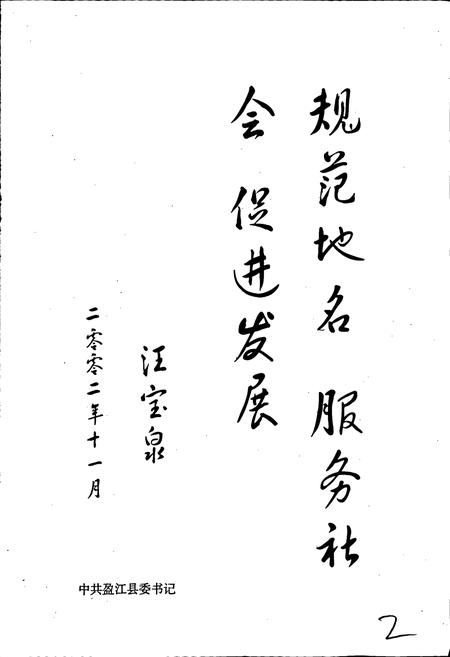 规范地名 服务社
会 促进发展
汪宝泉
二零零二年十一月
中共盈江县委书记
2